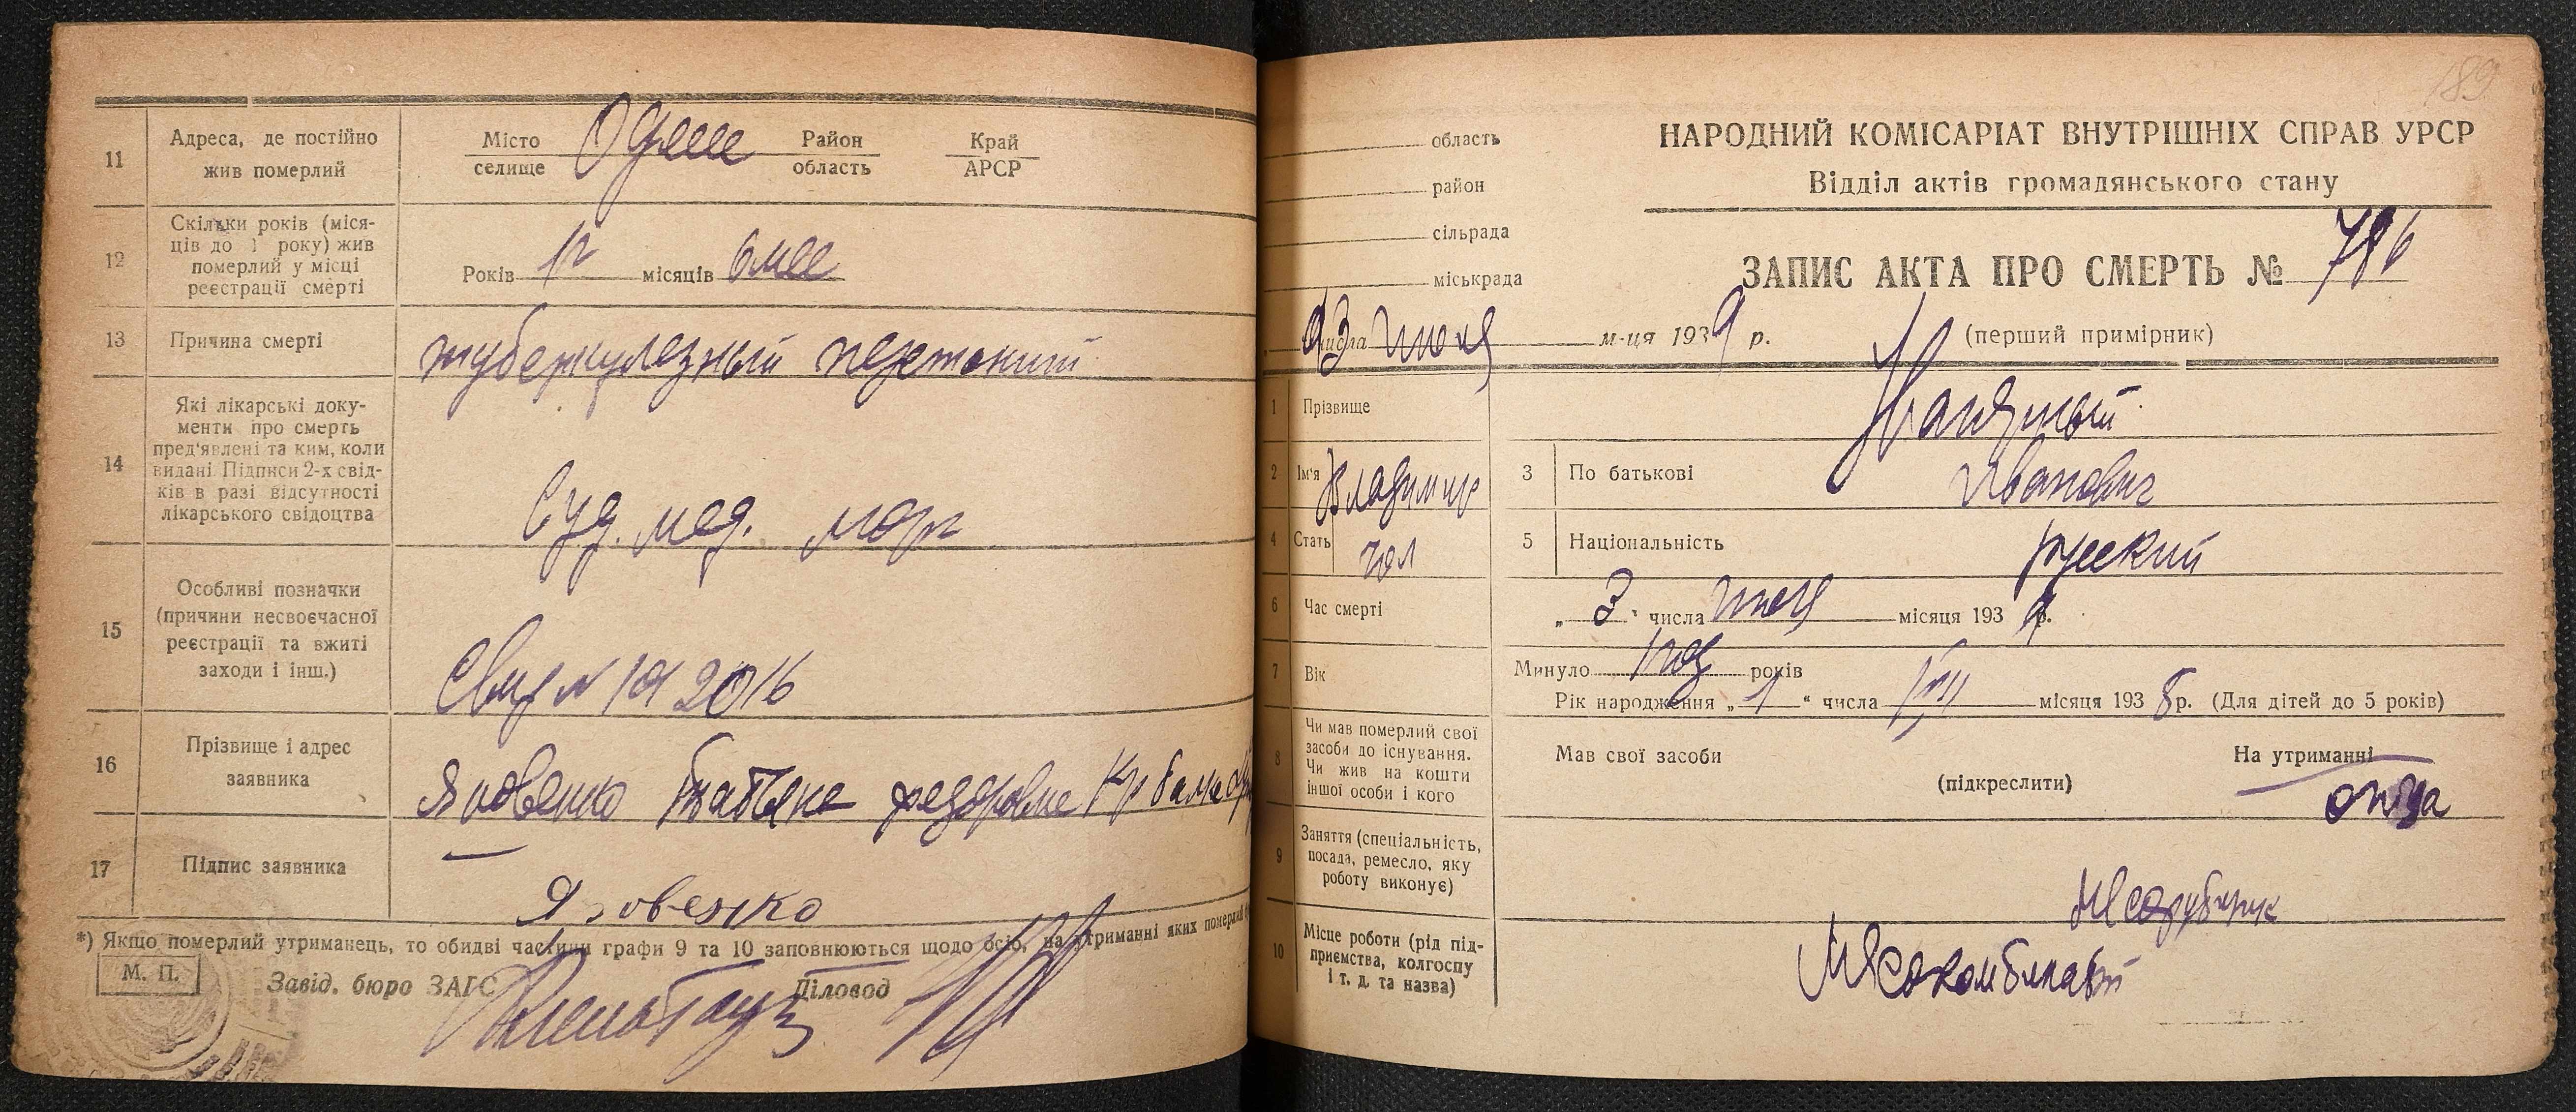 11
Адреса, де постійно
жив померлий
Місто
селище
Одесе
Район
область
Край
АРСР
12
Скільки років (міся-
ців до 1 року) жив
померлий у місці
реєстрації смерті
Років 1 г місяців 6 мес
13
Причина смерті
туберкулезный перетонит
14
Які лікарські доку-
менти про смерть
пред'явлені та ким, коли
видані. Підписи 2-х свід-
ків в разі відсутності
лікарського свідоцтва
Суд. мед. морг
15
Особливі позначки
(причини несвоєчасної
реєстрації та вжиті
заходи і інш.)
16
Прізвище і адрес
заявника
Яковенко Татьяна Федоровна Кр балка
17
Підпис заявника
Яковенко
*) Якщо померлий утриманець, то обидві частини графи 9 та 10 заповнюються щодо осіб, на утриманні яких померлий
М. П.
Завід. бюро ЗАГС
Діловод
189
область
район
сільрада
міськрада
НАРОДНИЙ КОМІСАРІАТ ВНУТРІШНІХ СПРАВ УРСР
Відділ актів громадянського стану
ЗАПИС АКТА ПРО СМЕРТЬ № 786
числа июля м-ця 1939 р.
(перший примірник)
1
Прізвище
2
Ім'я
Владимир
3
По батькові
Иванович
4
Стать
чол
5
Національність
русский
6
Час смерті
„ 3 " числа июля місяця 1939 р.
7
Вік
Минуло 1 год років
Рік народження „ 1 " числа місяця 1938 р. (Для дітей до 5 років)
8
Чи мав померлий свої
засоби до існування.
Чи жив на кошти
іншої особи і кого
Мав свої засоби
(підкреслити)
На утриманні
отца
9
Заняття (спеціальність,
посада, ремесло, яку
роботу виконує)
10
Місце роботи (рід під-
приємства, колгоспу
і т. д. та назва)
Мясокомбинат